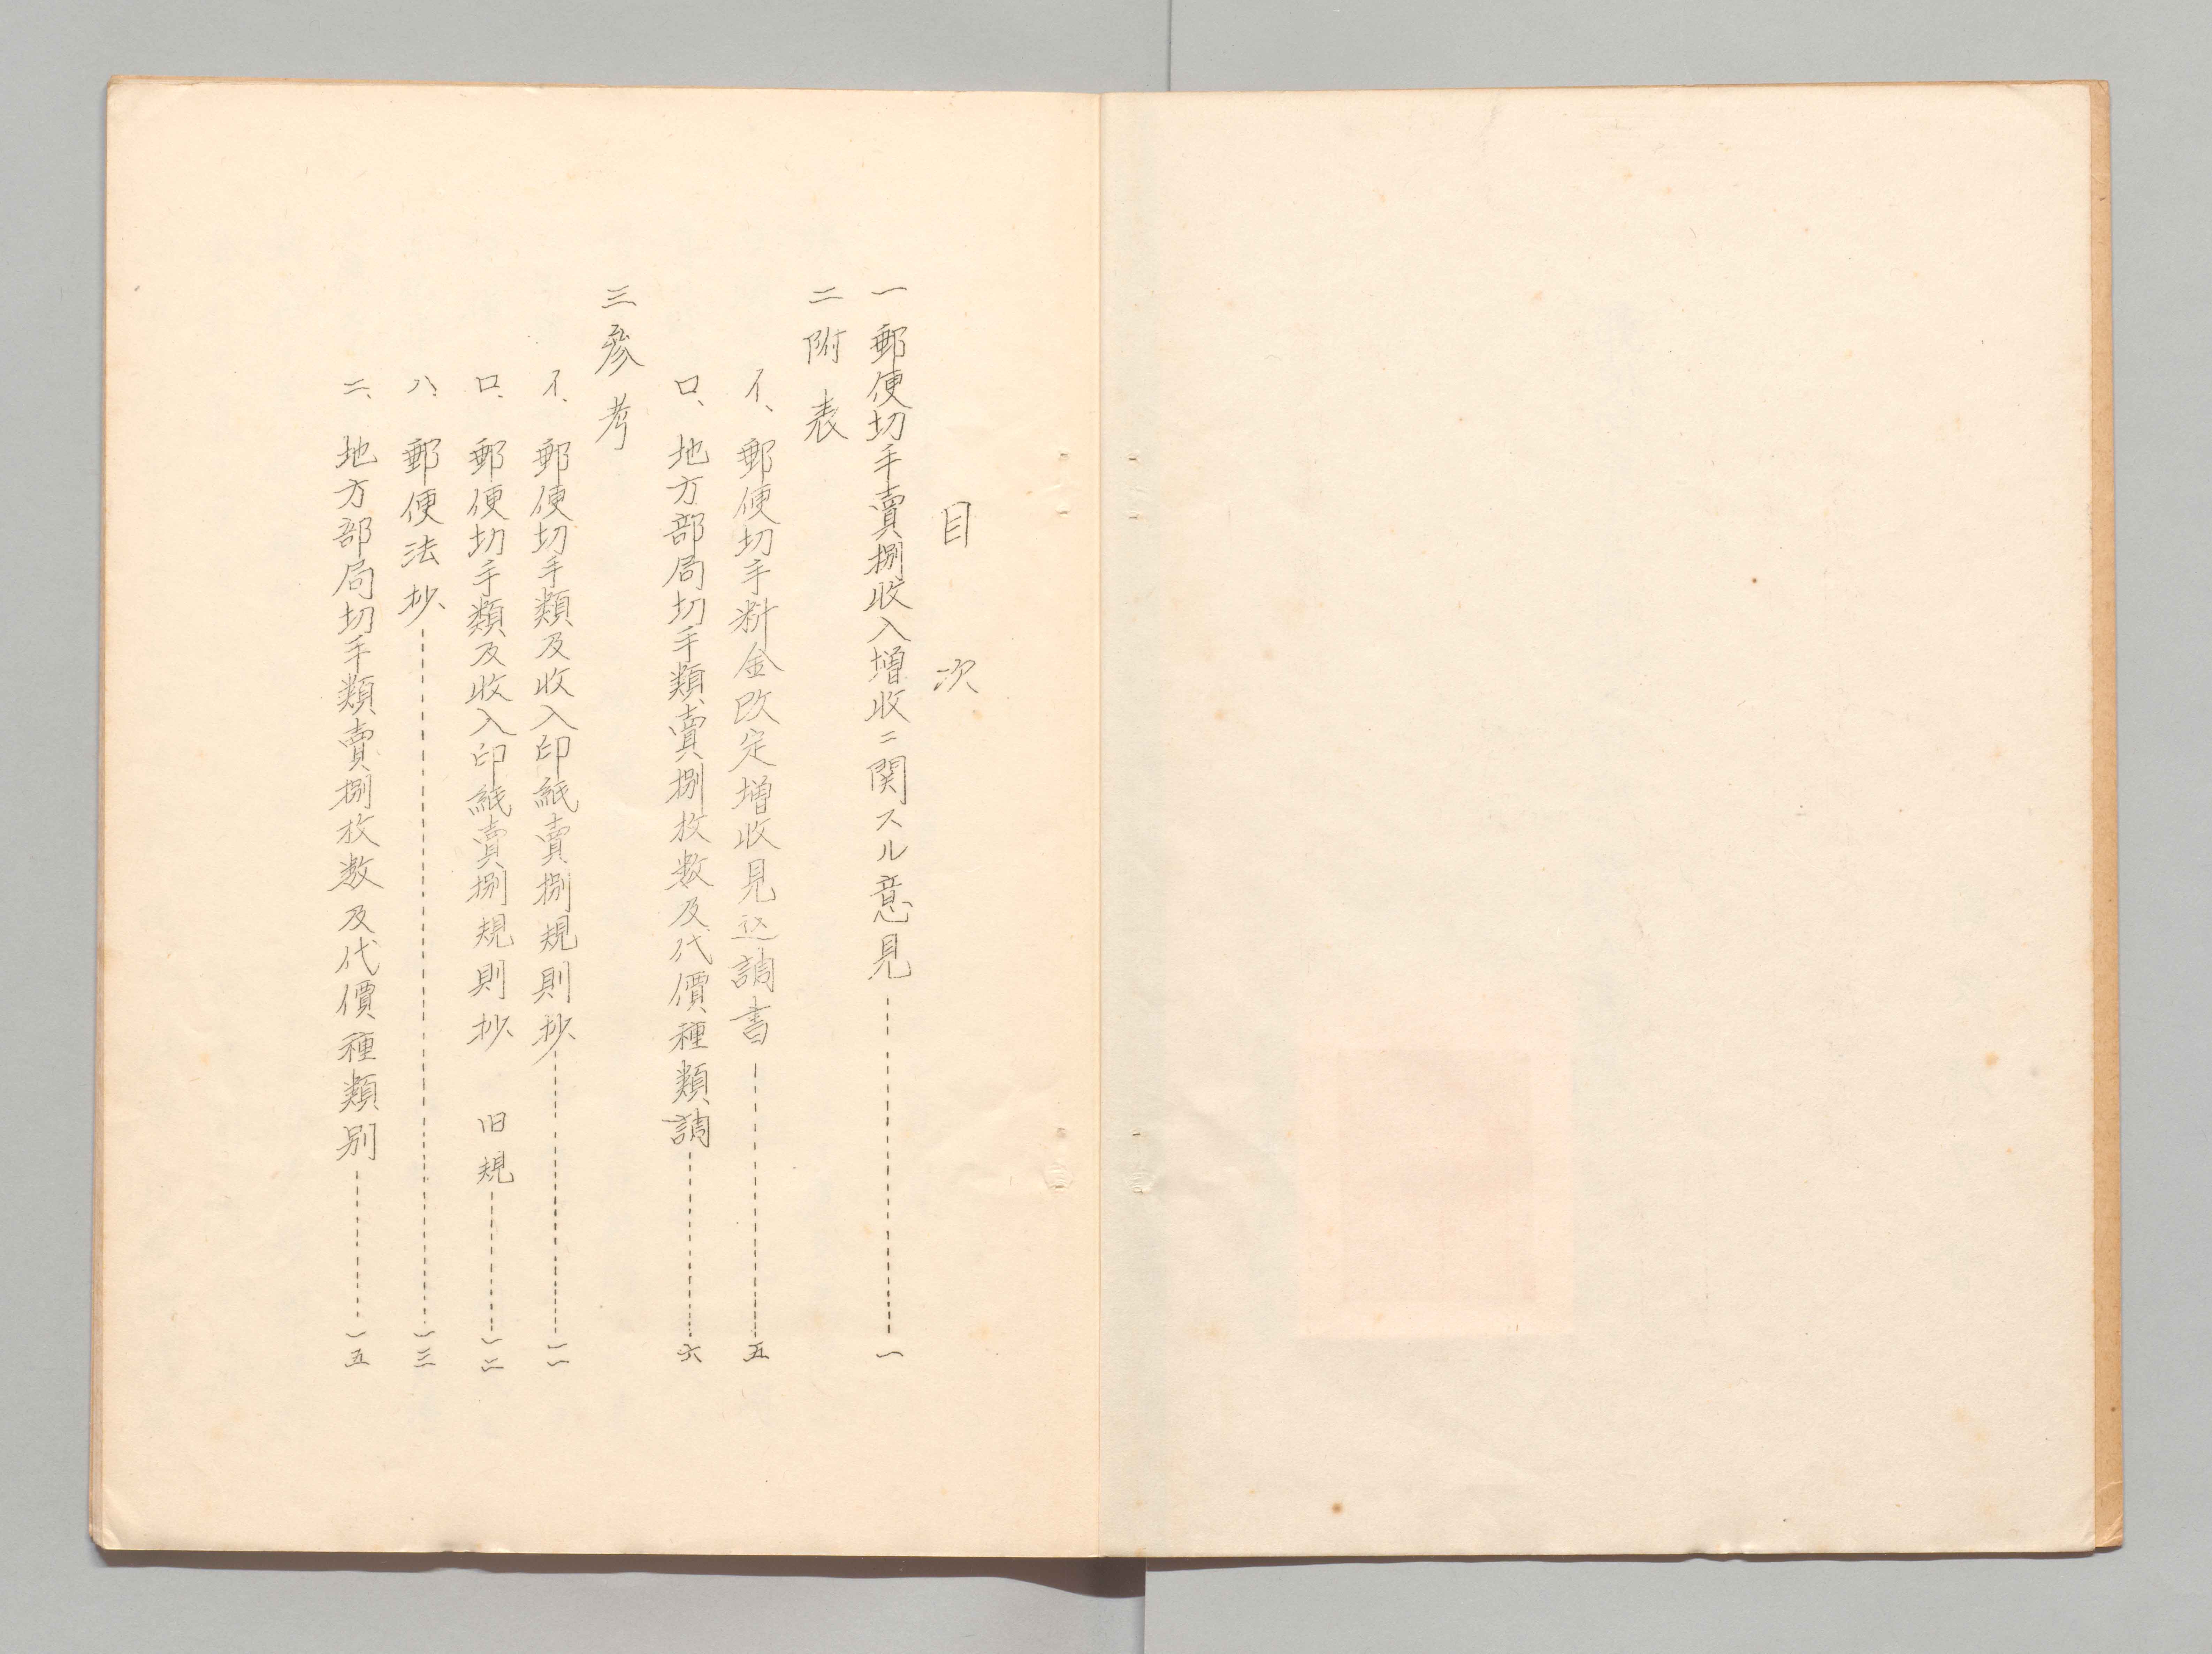 目次
一 郵便切手賣捌収入増収ニ関スル意見 ------ 一
二 附表
イ、郵便切手料金改定増收見込調書 ------ 五
ロ、地方部局切手類賣捌枚数及代價種類調 ------ 六
三 參考
イ、郵便切手類及收入印紙賣捌規則抄 ------ 一一
ロ、郵便切手類及收入印紙賣捌規則抄 旧規 ------ 一二
ハ、郵便法抄 ------ 一三
ニ、地方部局切手類賣捌枚数及代價種類別 ------ 一五